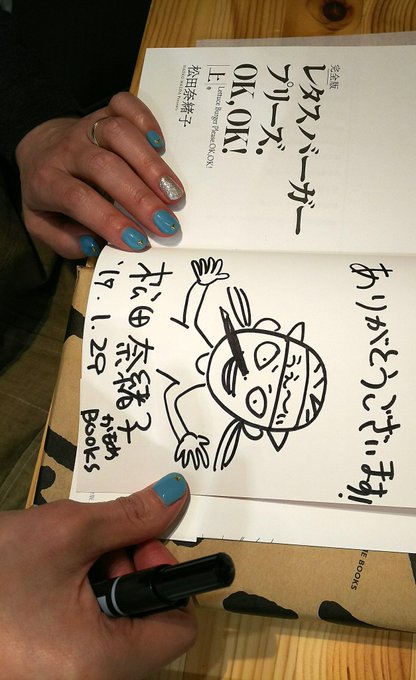 完全版
レタスバーガー
プリーズ.
OK, OK!
上
Lettuce Burger Please. OK, OK!
松田奈緒子
ありがとうございます!
松田奈緒子
'17.1.29
かもめ
BOOKS
BOOKS